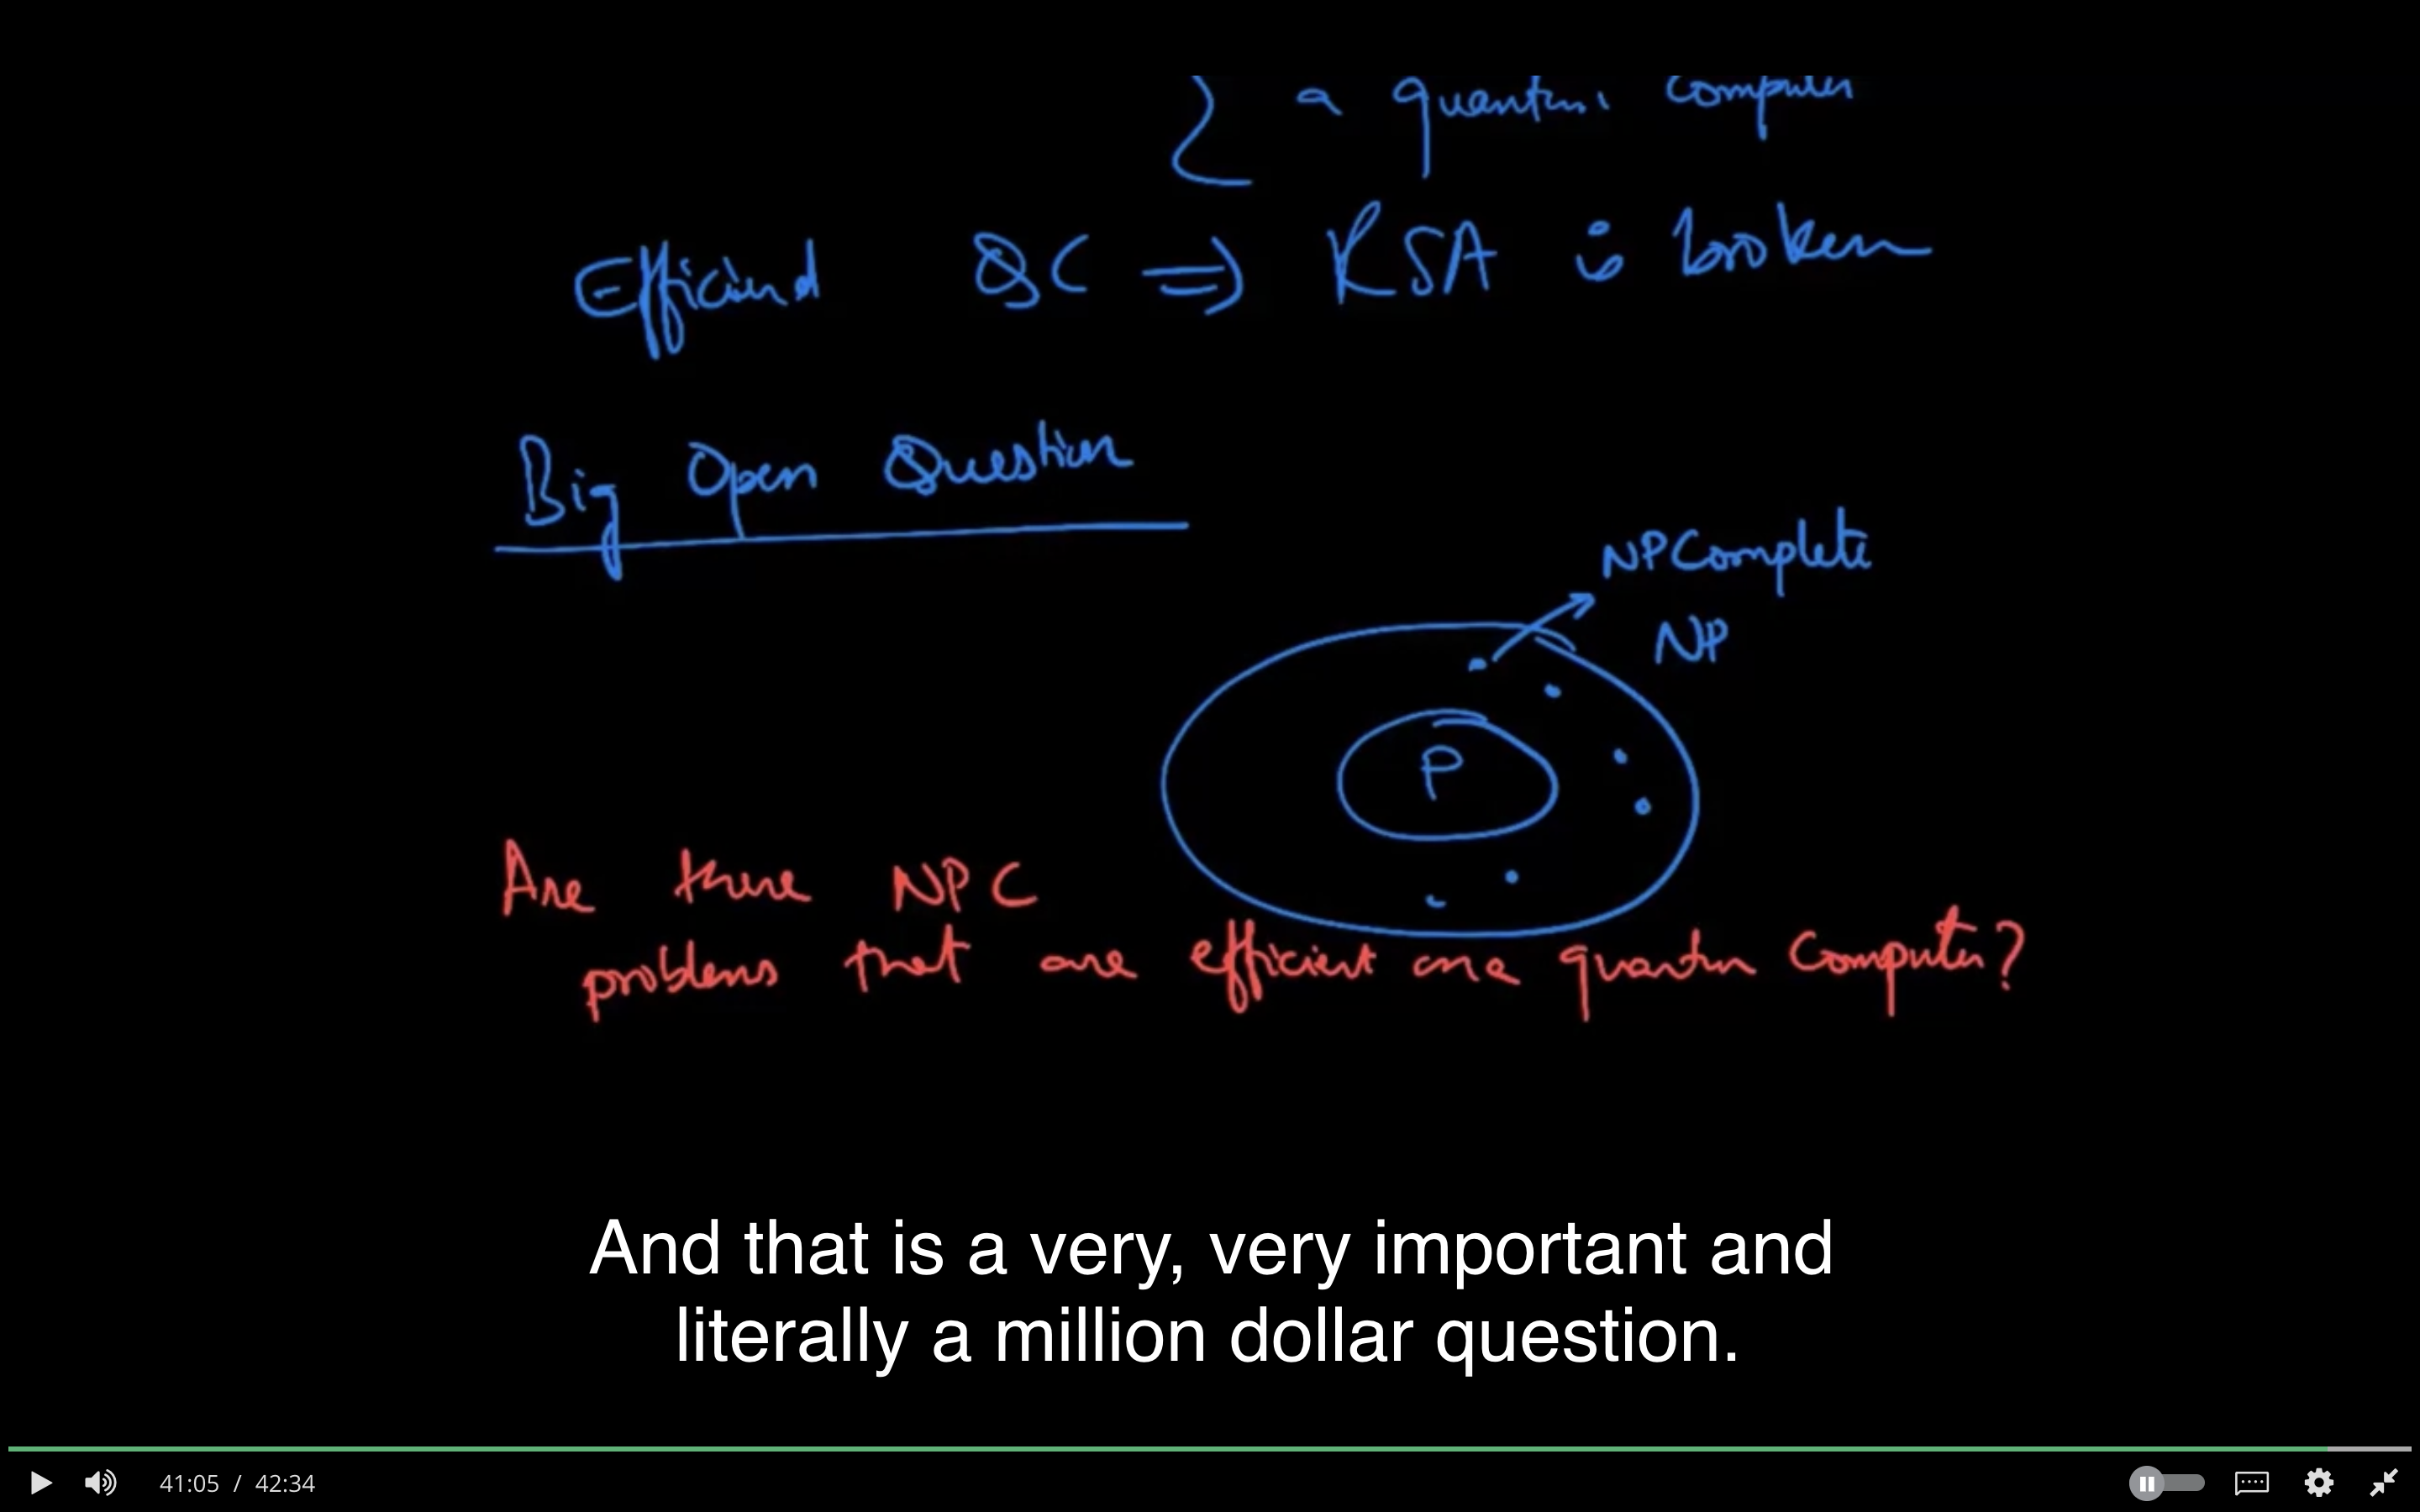 a quantum computer
Efficient QC ⇒ RSA is broken
Big Open Question
NPComplete
NP
P
Are there NPC
problems that are efficient on a quantum Computer?
And that is a very, very important and
literally a million dollar question.
41:05 / 42:34